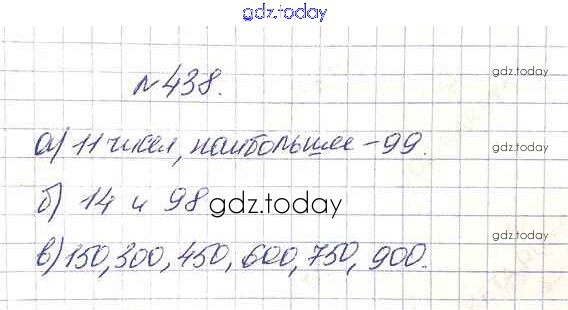 gdz.today
№438.
gdz.today
а) 11 чисел, наибольшее – 99.
gdz.today
б) 14 и 98
gdz.today
в) 150, 300, 450, 600, 750, 900.